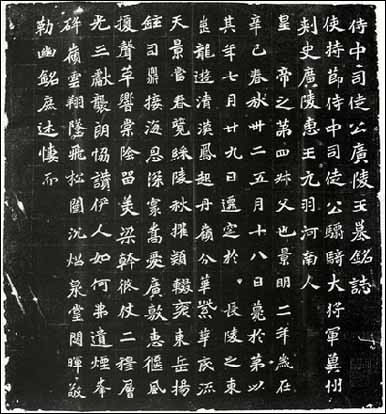 侍中司徒公廣陵王墓銘誌
使持節侍中司徒公驃騎大將軍冀州
刺史廣陵惠王元羽河南人
皇帝之第四叔父也景明二年歲在
辛巳春秋卅二五月十八日薨於第以
其年七月廿九日遷窆於 長陵之東
崗龍遊清漢鳳起丹嶺分華紫萼底流
天景官春蘭綵陵秋擢穎轢袞東岳揚
鉉司鼎接海恩深寰嵩愛廣敦惠偃風
援聲革響棠陰留美梁幹依仗二穆層
光三獻襲朗協讚伊人如何弗遺煙峯
碎嶺雲翔墜飛松闈沈燭泉堂閟暉敬
勒幽銘庶述悽而